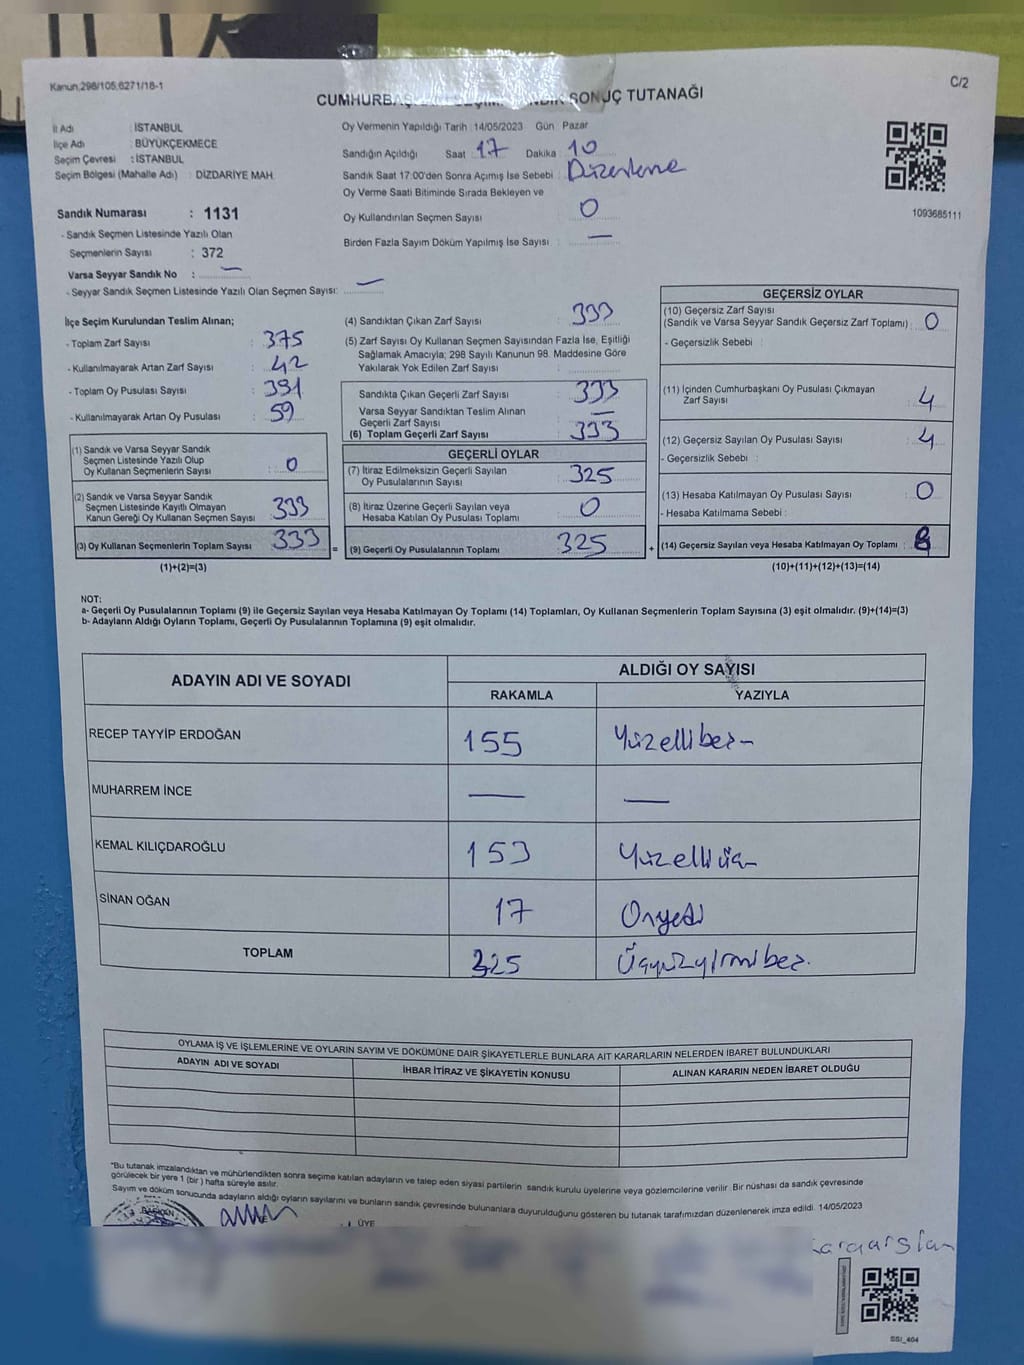 Kanun,298/105,6271/18-1
C/2
CUMHURBAŞ SONUÇ TUTANAĞI
İl Adı : İSTANBUL
İlçe Adı : BÜYÜKÇEKMECE
Seçim Çevresi : İSTANBUL
Seçim Bölgesi (Mahalle Adı) : DİZDARİYE MAH.
Oy Vermenin Yapıldığı Tarih : 14/05/2023 Gün : Pazar
Sandığın Açıldığı Saat : 17 Dakika : 10
Sandık Saat 17:00'den Sonra Açımış İse Sebebi : Düzenleme
Oy Verme Saati Bitiminde Sırada Bekleyen ve
Oy Kullandırılan Seçmen Sayısı : 0
Birden Fazla Sayım Döküm Yapılmış İse Sayısı : —
1093685111
Sandık Numarası : 1131
- Sandık Seçmen Listesinde Yazılı Olan
Seçmenlerin Sayısı : 372
Varsa Seyyar Sandık No : —
- Seyyar Sandık Seçmen Listesinde Yazılı Olan Seçmen Sayısı: —
İlçe Seçim Kurulundan Teslim Alınan;
- Toplam Zarf Sayısı : 375
- Kullanılmayarak Artan Zarf Sayısı : 42
- Toplam Oy Pusulası Sayısı : 391
- Kullanılmayarak Artan Oy Pusulası : 59
(1) Sandık ve Varsa Seyyar Sandık
Seçmen Listesinde Yazılı Olup
Oy Kullanan Seçmenlerin Sayısı : 0
(2) Sandık ve Varsa Seyyar Sandık
Seçmen Listesinde Kayıtlı Olmayan
Kanun Gereği Oy Kullanan Seçmen Sayısı : 333
(3) Oy Kullanan Seçmenlerin Toplam Sayısı : 333
(1)+(2)=(3)
(4) Sandıktan Çıkan Zarf Sayısı : 333
(5) Zarf Sayısı Oy Kullanan Seçmen Sayısından Fazla İse, Eşitliği
Sağlamak Amacıyla; 298 Sayılı Kanunun 98. Maddesine Göre
Yakılarak Yok Edilen Zarf Sayısı :
Sandıkta Çıkan Geçerli Zarf Sayısı : 333
Varsa Seyyar Sandıktan Teslim Alınan
Geçerli Zarf Sayısı : —
(6) Toplam Geçerli Zarf Sayısı : 333
GEÇERLİ OYLAR
(7) İtiraz Edilmeksizin Geçerli Sayılan
Oy Pusulalarının Sayısı : 325
(8) İtiraz Üzerine Geçerli Sayılan veya
Hesaba Katılan Oy Pusulası Toplamı : 0
= (9) Geçerli Oy Pusulalarının Toplamı : 325
GEÇERSİZ OYLAR
(10) Geçersiz Zarf Sayısı
(Sandık ve Varsa Seyyar Sandık Geçersiz Zarf Toplamı) : 0
- Geçersizlik Sebebi :
(11) İçinden Cumhurbaşkanı Oy Pusulası Çıkmayan
Zarf Sayısı : 4
(12) Geçersiz Sayılan Oy Pusulası Sayısı : 4
- Geçersizlik Sebebi :
(13) Hesaba Katılmayan Oy Pusulası Sayısı : 0
- Hesaba Katılmama Sebebi :
+ (14) Geçersiz Sayılan veya Hesaba Katılmayan Oy Toplamı : 8
(10)+(11)+(12)+(13)=(14)
NOT:
a- Geçerli Oy Pusulalarının Toplamı (9) ile Geçersiz Sayılan veya Hesaba Katılmayan Oy Toplamı (14) Toplamları, Oy Kullanan Seçmenlerin Toplam Sayısına (3) eşit olmalıdır. (9)+(14)=(3)
b- Adayların Aldığı Oyların Toplamı, Geçerli Oy Pusulalarının Toplamına (9) eşit olmalıdır.
ADAYIN ADI VE SOYADI
ALDIĞI OY SAYISI
RAKAMLA YAZIYLA
RECEP TAYYİP ERDOĞAN 155 Yüzellibeş
MUHARREM İNCE — —
KEMAL KILIÇDAROĞLU 153 Yüzelliüç
SİNAN OĞAN 17 Onyedi
TOPLAM 325 Üçyüzyirmibeş.
OYLAMA İŞ VE İŞLEMLERİNE VE OYLARIN SAYIM VE DÖKÜMÜNE DAİR ŞİKAYETLERLE BUNLARA AİT KARARLARIN NELERDEN İBARET BULUNDUKLARI
ADAYIN ADI VE SOYADI İHBAR İTİRAZ VE ŞİKAYETİN KONUSU ALINAN KARARIN NEDEN İBARET OLDUĞU
"Bu tutanak imzalandıktan ve mühürlendikten sonra seçime katılan adayların ve talep eden siyasi partilerin sandık kurulu üyelerine veya gözlemcilerine verilir. Bir nüshası da sandık çevresinde
görülecek bir yere 1 (bir) hafta süreyle asılır.
Sayım ve döküm sonucunda adayların aldığı oyların sayılarını ve bunların sandık çevresinde bulunanlara duyurulduğunu gösteren bu tutanak tarafımızdan düzenlenerek imza edildi. 14/05/2023
BAŞKAN
ÜYE
SSI_404